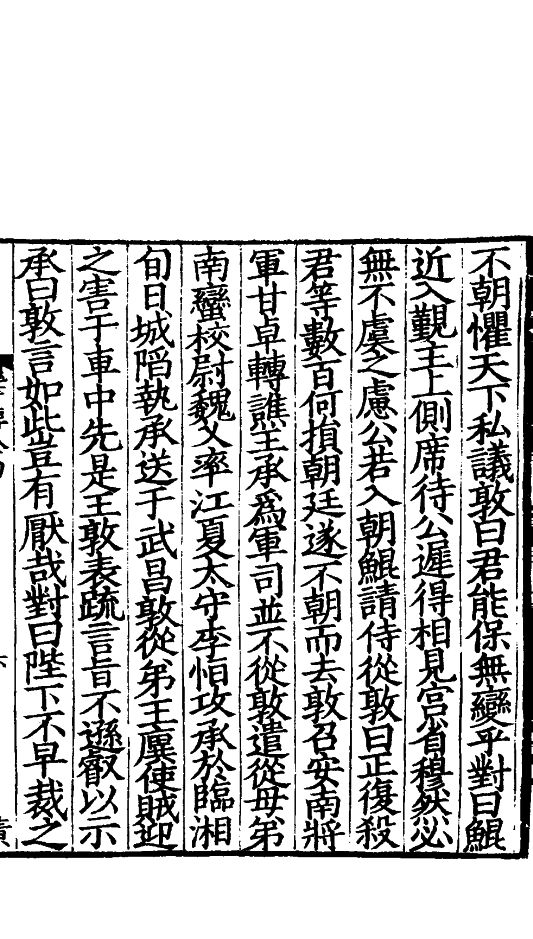 不朝懼天下私議敦曰君能保無變乎對曰鯤
近入覲主上側席待公遲得相見宮省穆然必
無不虞之慮公若入朝鯤請侍從敦曰正復殺
君等數百何損朝廷遂不朝而去敦召安南將
軍甘卓轉譙王承爲軍司並不從敦遣從母弟
南蠻校尉魏乂率江夏太守李恒攻承於臨湘
旬日城陷執承送于武昌敦從弟王廙使賊迎
之害于車中先是王敦表疏言旨不遜叡以示
承曰敦言如此豈有厭哉對曰陛下不早裁之